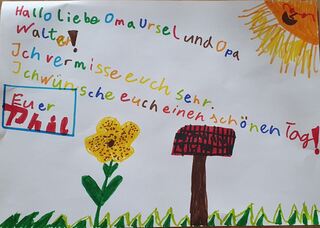 Hallo liebe Oma Ursel und Opa
Walter!
Ich vermisse euch sehr.
Ich wünsche euch einen schönen Tag!
Euer
Phil